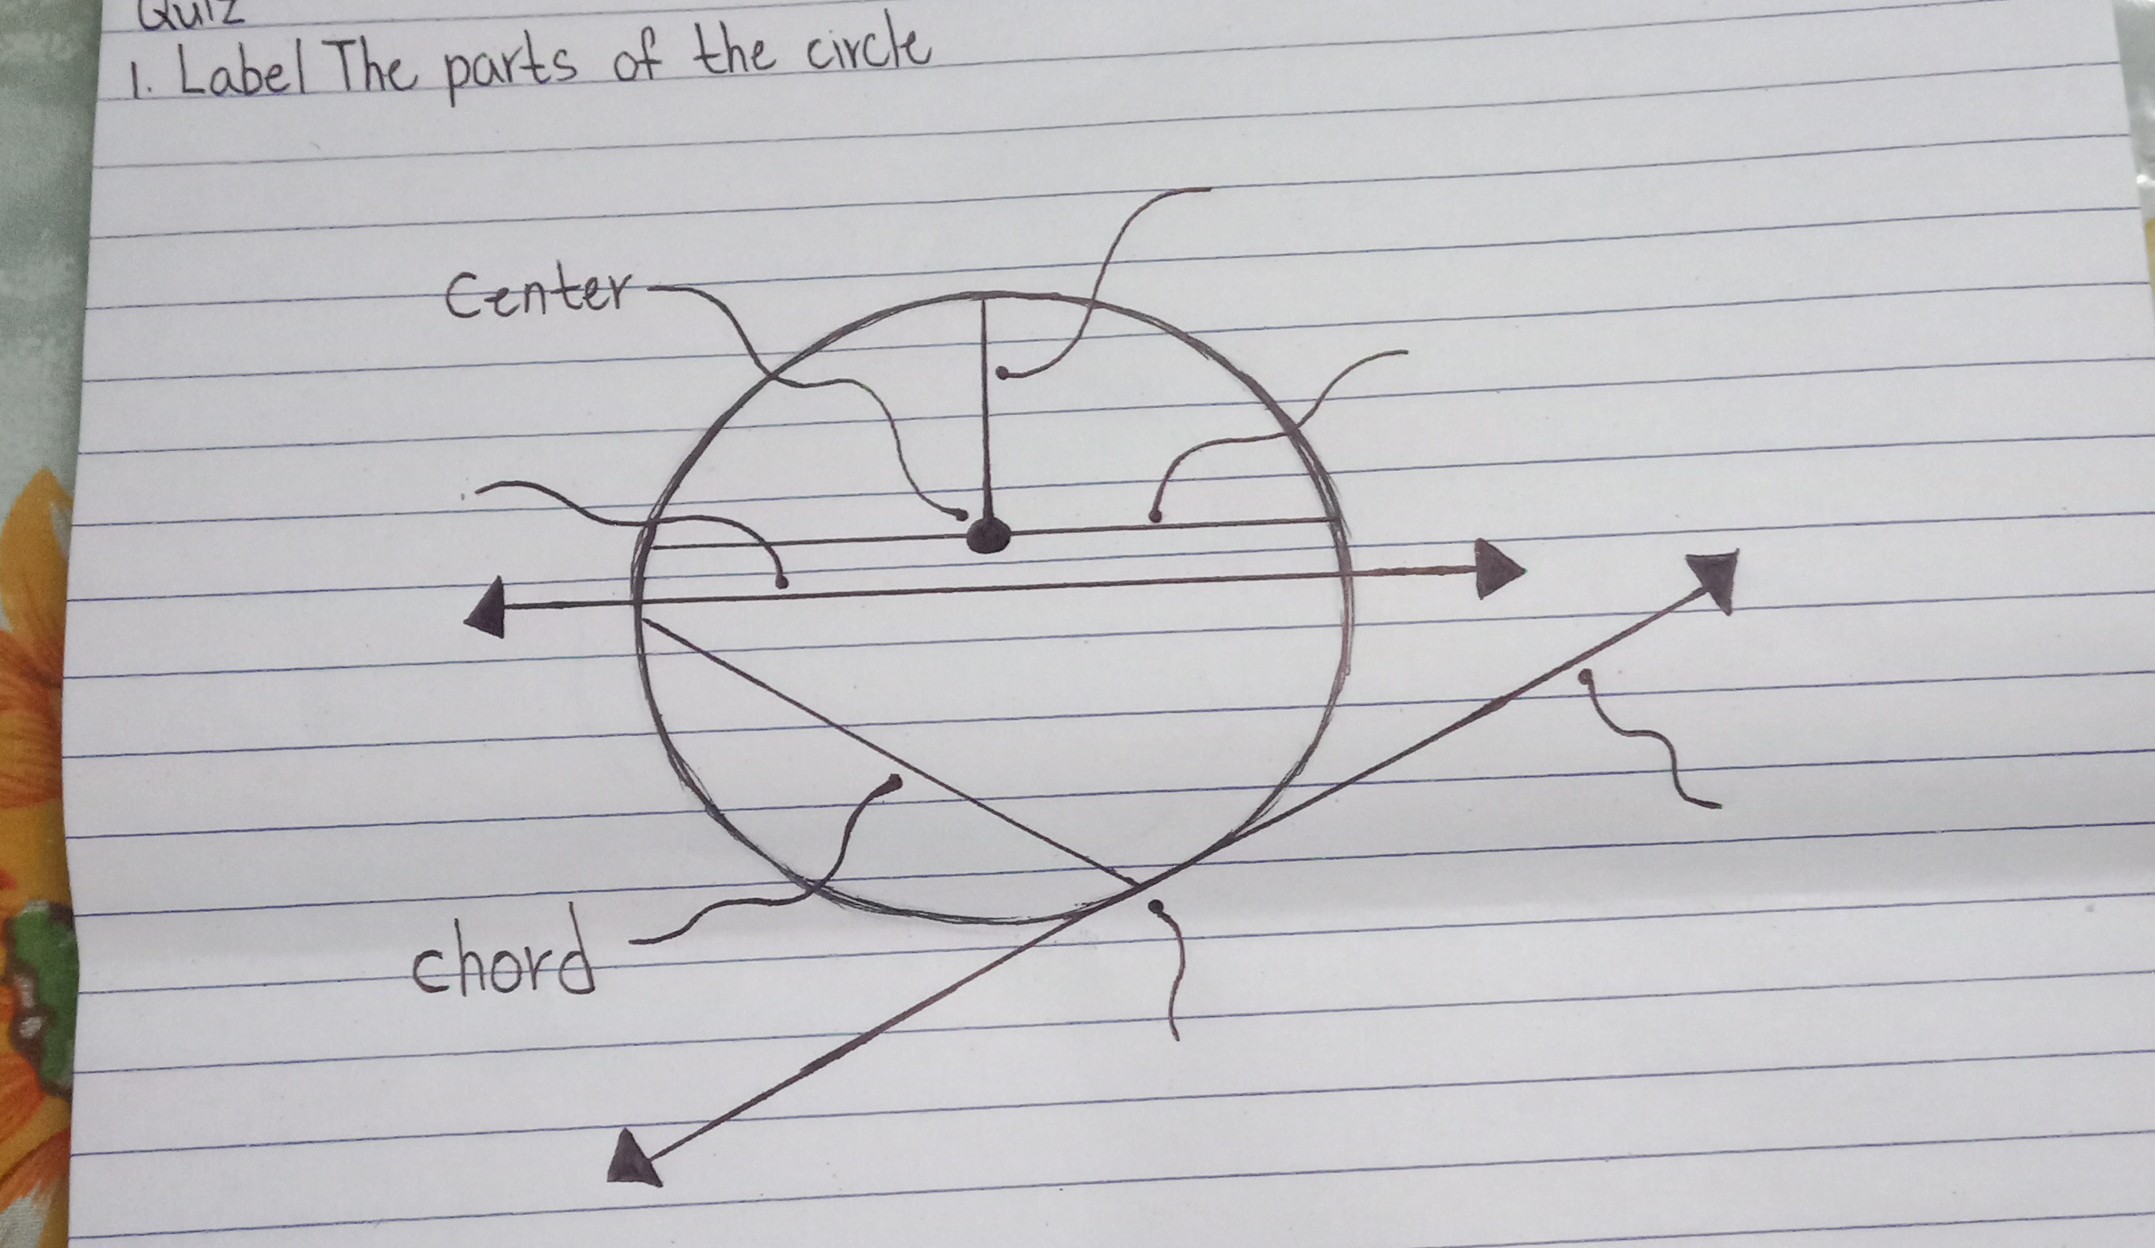 Quiz
1. Label The parts of the circle
Center
chord